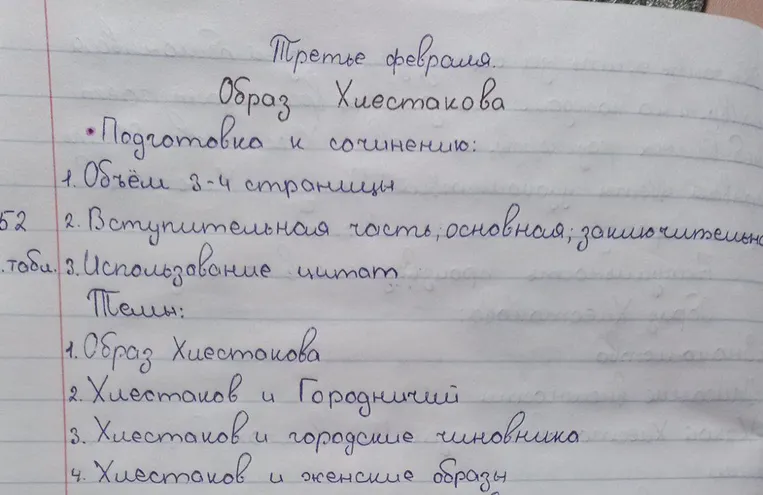 Третье февраля.
Образ Хлестакова
• Подготовка к сочинению:
1. Объём 3-4 страницы
52 2. Вступительная часть, основная; заключительна
.табл. 3. Использование цитат
Темы:
1. Образ Хлестакова
2. Хлестаков и Городничий
3. Хлестаков и городские чиновника
4. Хлестаков и женские образы